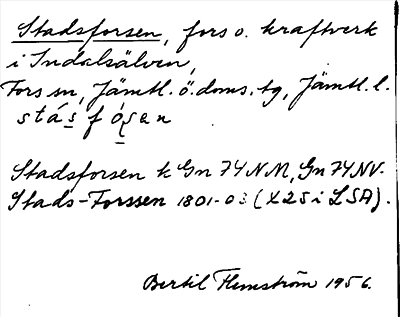 Stadsforsen, fors o. kraftverk
i Indalsälven,
Fors sn, Jämtl. ö. doms. tg, Jämtl. l.
Stadsforsen k Gn 74 NM, Gn 74 NV.
Stads-Forssen 1801-03 (X25 i LSA).
Bertil Flemström 1956.